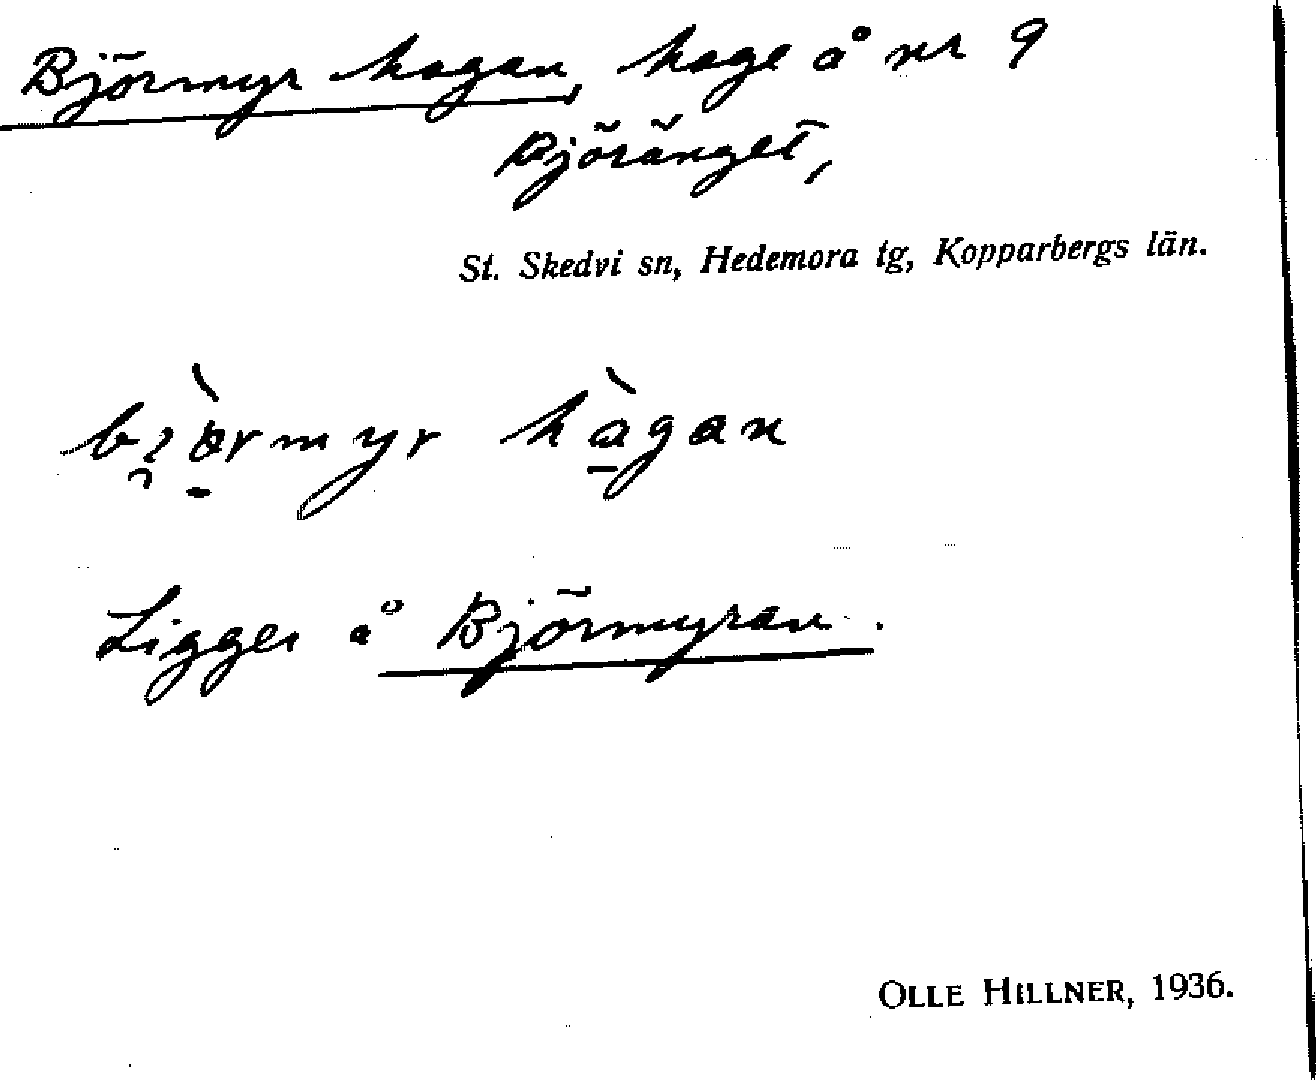 Björmyr hagan, hage å nr 9
Björänget,
St. Skedvi sn, Hedemora tg, Kopparbergs län.
hàgan
Ligger å Björmyran.
OLLE HILLNER, 1936.